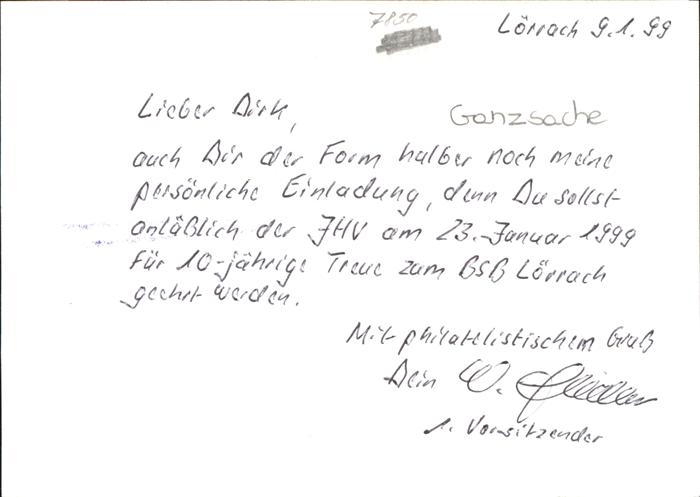 7850
Lörrach 9.1.99
Lieber Dirk,
Ganzsache
auch Dir der Form halber noch meine
persönliche Einladung, denn Du sollst
anläßlich der JHV am 23. Januar 1999
für 10-jährige Treue zum BSB Lörrach
geehrt werden.
Mit philatelistischem Gruß
Dein W.
1. Vorsitzender